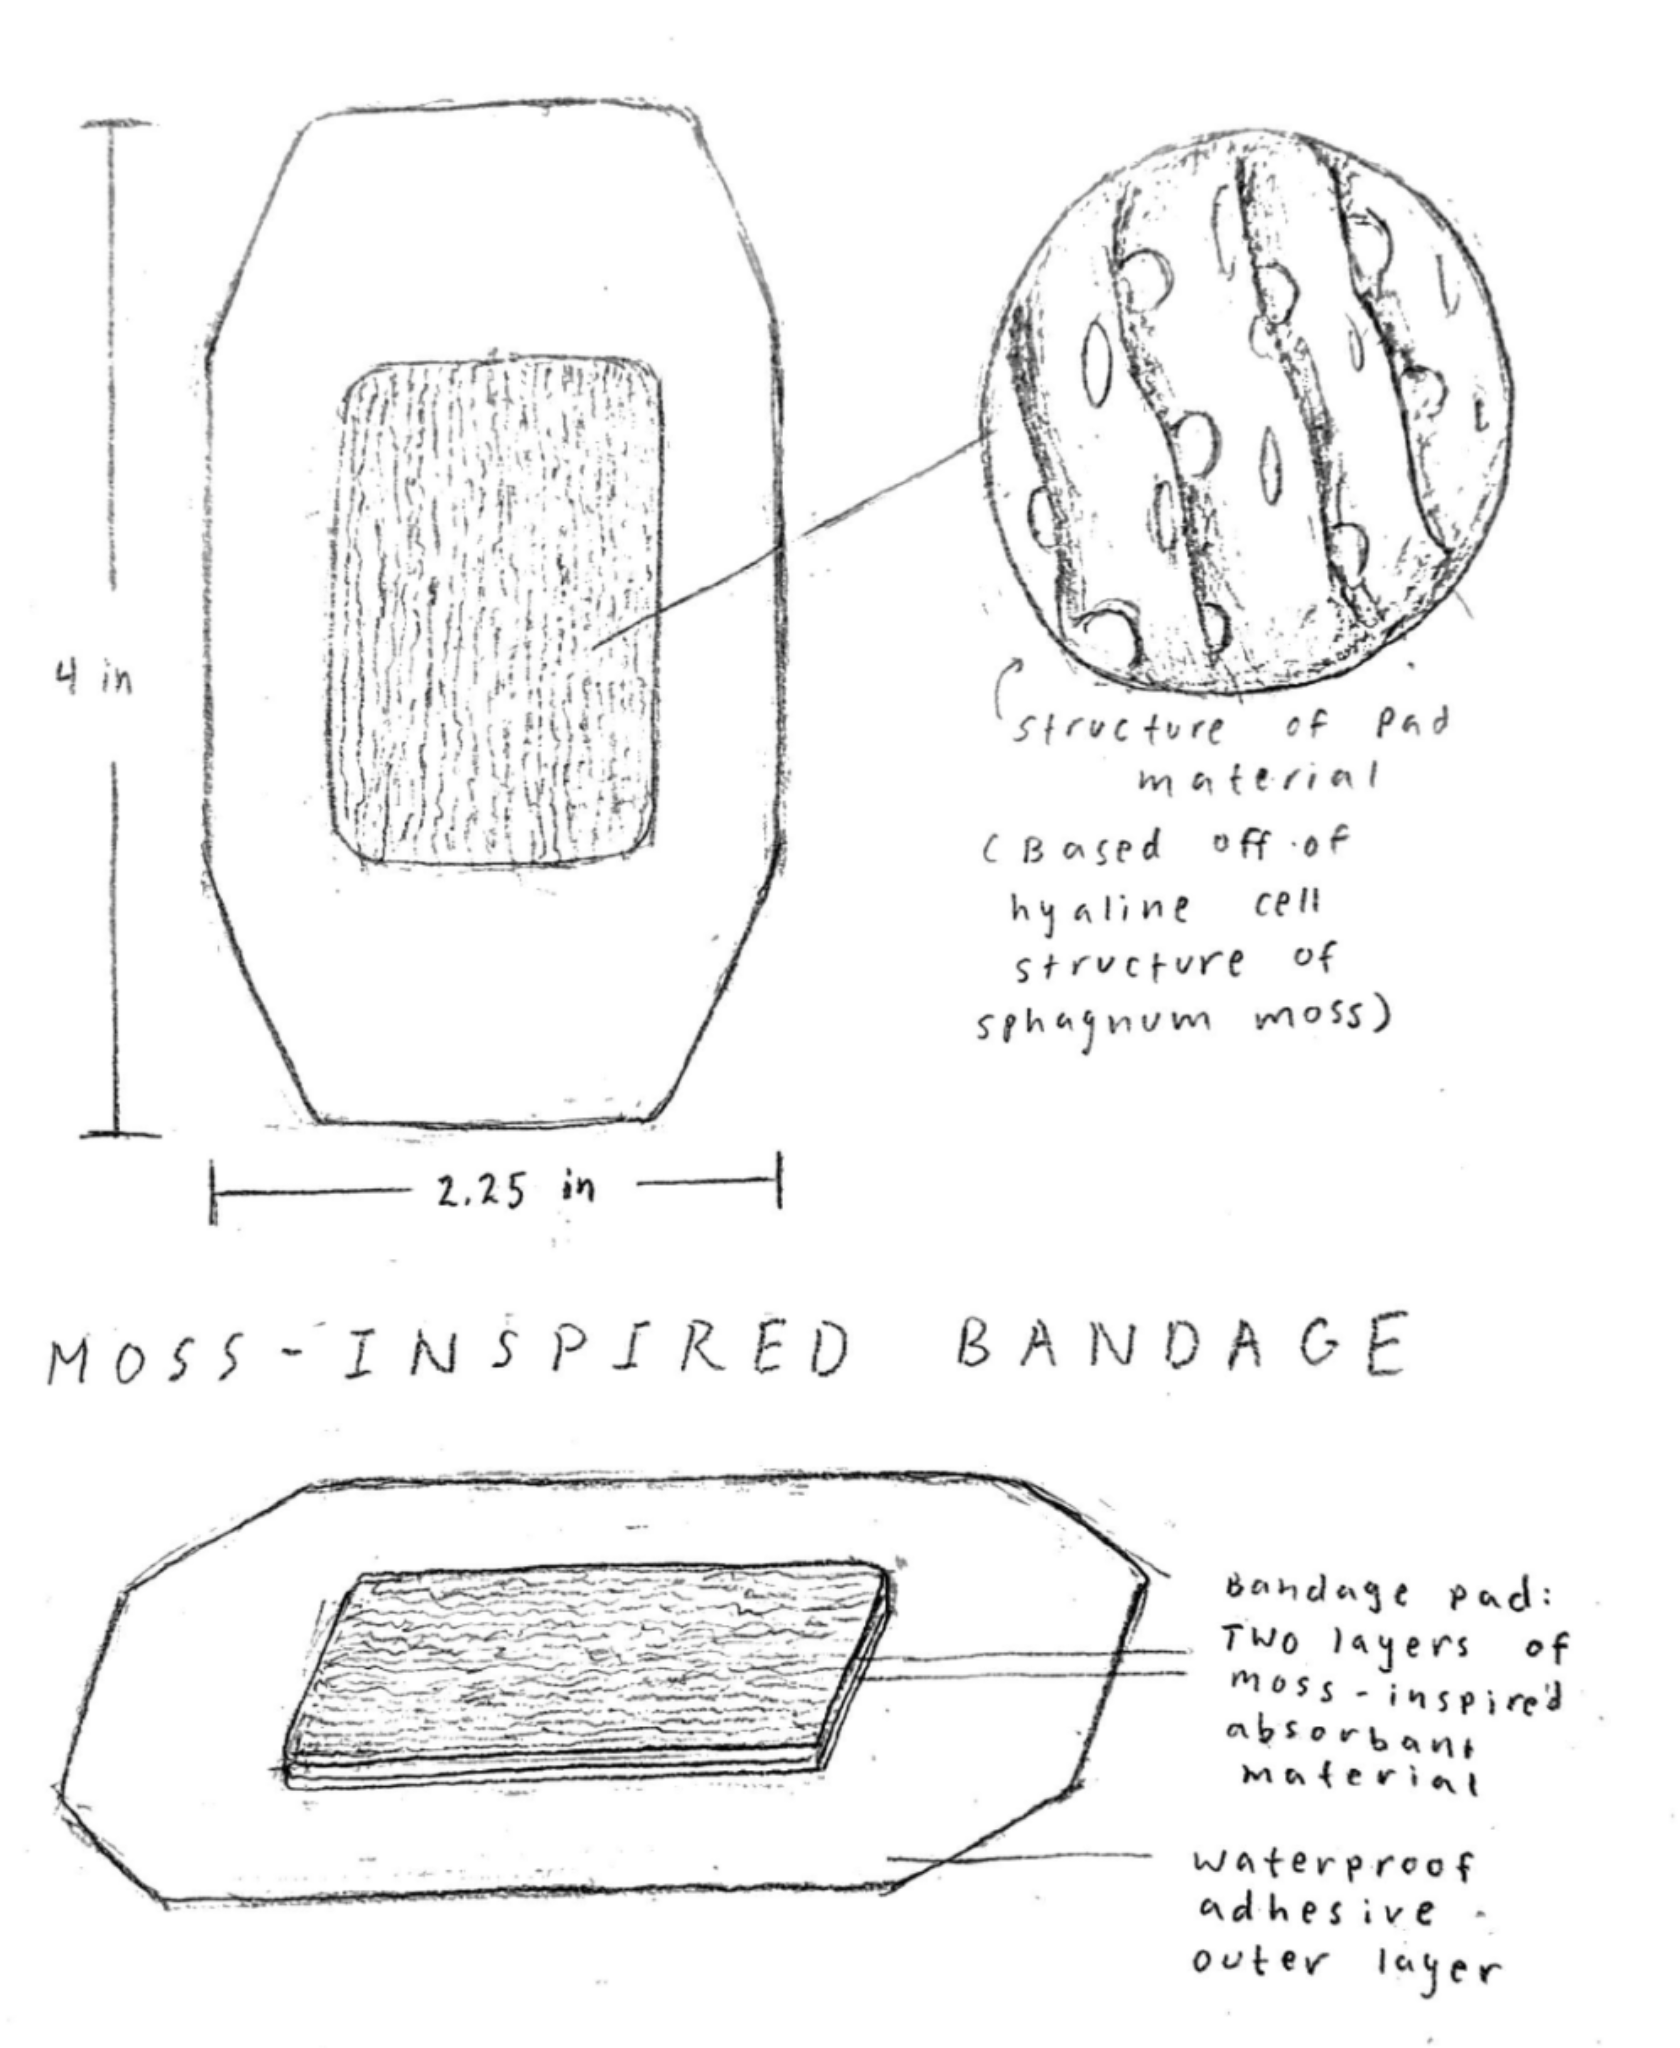 4 in
structure of pad
material
(Based off of
hyaline cell
structure of
sphagnum moss)
2.25 in
MOSS-INSPIRED BANDAGE
Bandage pad:
Two layers of
moss-inspired
absorbant
material
waterproof
adhesive
outer layer